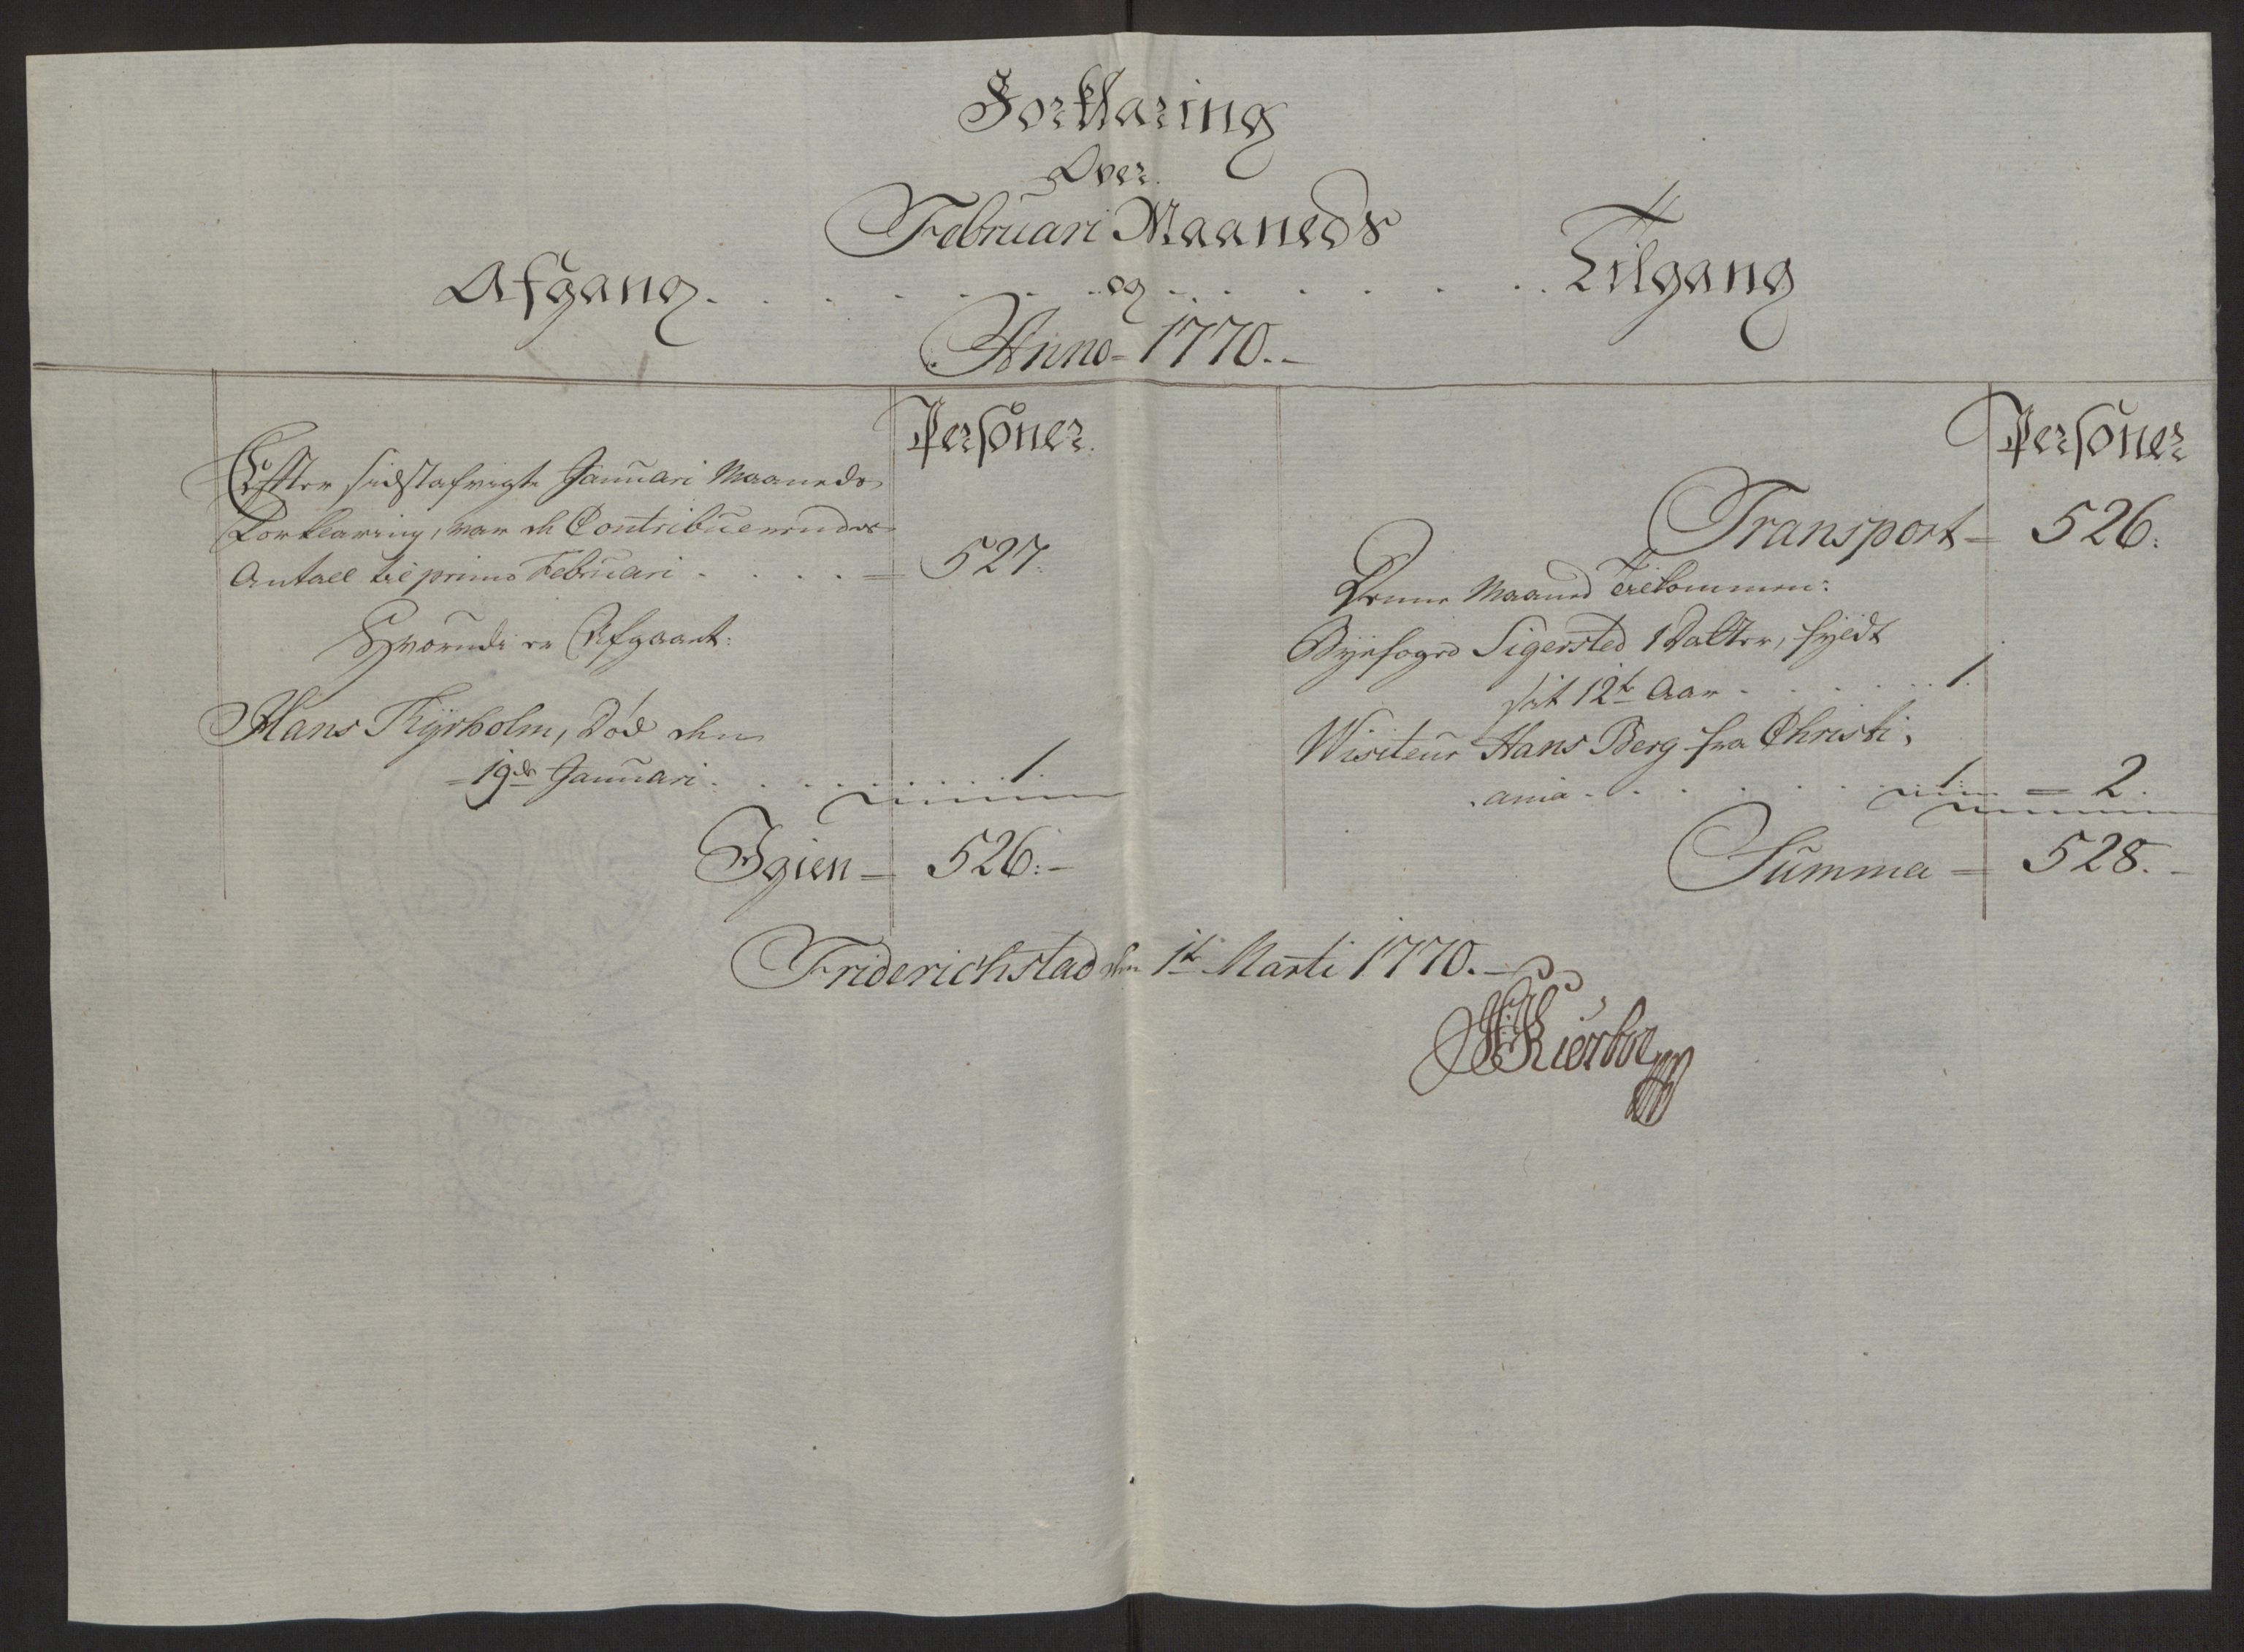 Forklaring
Over
Februari Maaneds
Afgang . . . . . . og . . . . . . Tilgang
Anno 1770.
Personer.
Effter sidstafvigte Januari Maaneds
Forklaring, var de Contribuerendes
Antall til primo Februari . . . . = 527.
Hvorudi er Afgaaet:
Hans Kyrholm, Død den
19de Januari . . . . . 1.
Igien = 526.
Personer
Transport = 526.
Denne Maaned Tilkommen:
Byefoged Sigersted 1 Datter, fyldt
sit 12te Aar . . . . . 1.
Visiteur Hans Berg fra Christi,
ania . . . . . . 1. = 2.
Summa = 528.
Friderichstad den 1te Marti 1770.